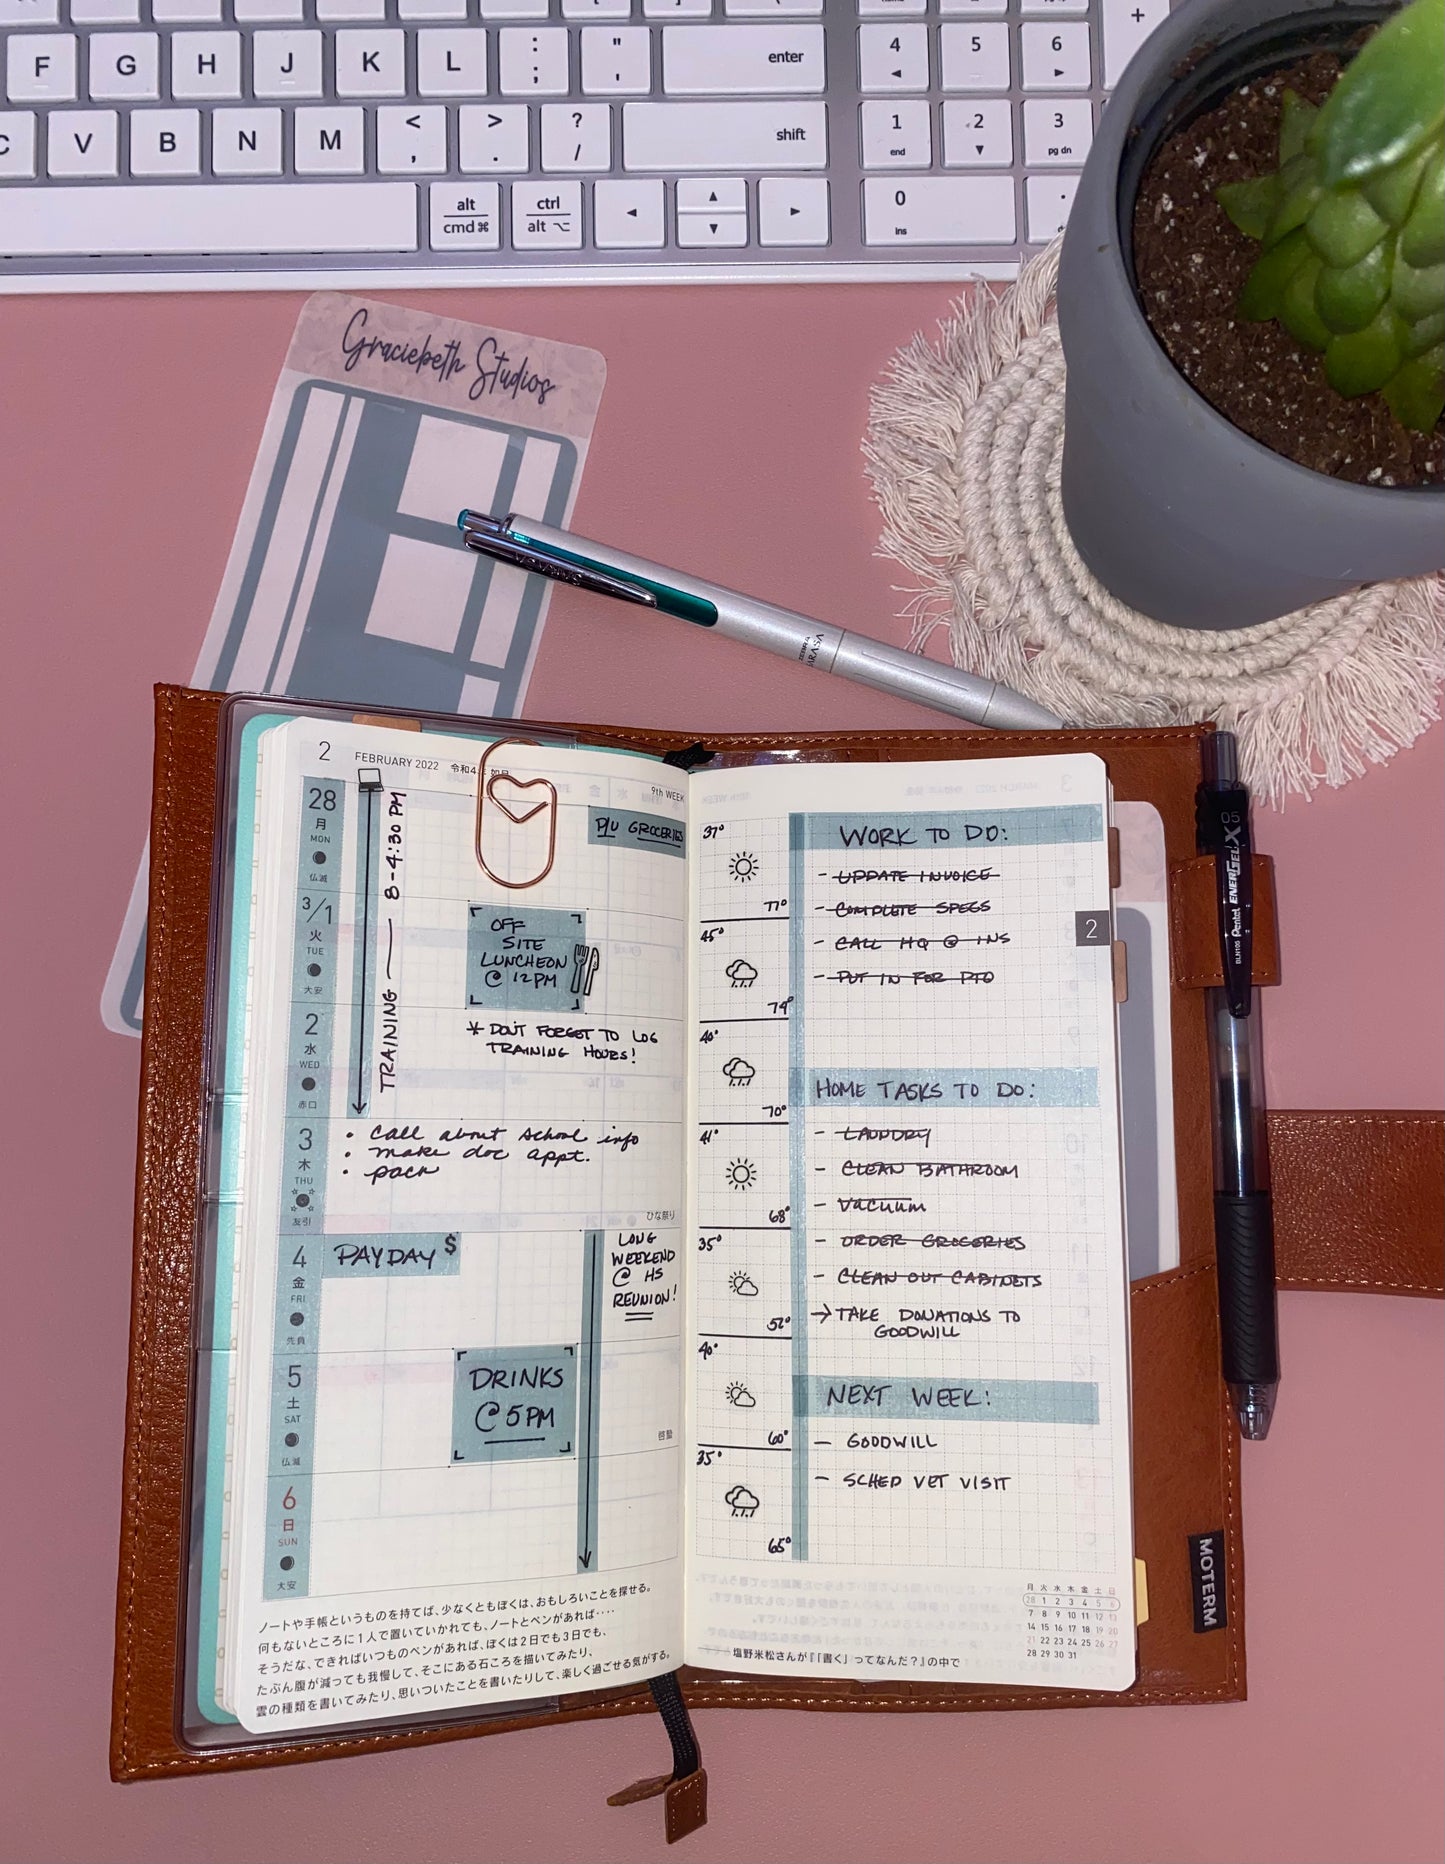 F G H J K L : ; " ' enter 4 5 6 +
C V B N M < , > . ? / shift 1 end 2 3 pg dn
alt cmd ⌘ ctrl alt ⌥ 0 ins .
Graciebeth Studios
ZEBRA
SARASA
2 FEBRUARY 2022 令和4年 如月
9th WEEK
28
月
MON
仏滅
8-4:30 PM
TRAINING
P/U GROCERIES
3/1
火
TUE
大安
OFF
SITE
LUNCHEON
@ 12PM
2
水
WED
赤口
* DON'T FORGET TO LOG
TRAINING HOURS!
3
木
THU
友引
• call about school info
• make doc appt.
• pack
ひな祭り
4
金
FRI
先負
PAYDAY $
LONG
WEEKEND
@ HS
REUNION!
5
土
SAT
仏滅
DRINKS
@ 5PM
啓蟄
6
日
SUN
大安
ノートや手帳というものを持てば、少なくともぼくは、おもしろいことを探せる。
何もないところに1人で置いていかれても、ノートとペンがあれば‥‥
そうだな、できればいつものペンがあれば、ぼくは2日でも3日でも、
たぶん腹が減っても我慢して、そこにある石ころを描いてみたり、
雲の種類を書いてみたり、思いついたことを書いたりして、楽しく過ごせる気がする。
37°
77°
45°
74°
40°
70°
41°
68°
35°
52°
40°
60°
35°
65°
WORK TO DO:
- UPDATE INVOICE
- COMPLETE SPECS
- CALL HQ @ INS
- PUT IN FOR PTO
2
HOME TASKS TO DO:
- LAUNDRY
- CLEAN BATHROOM
- Vacuum
- ORDER GROCERIES
- CLEAN OUT CABINETS
→ TAKE DONATIONS TO
GOODWILL
NEXT WEEK:
- GOODWILL
- SCHED VET VISIT
月 火 水 木 金 土 日
28 1 2 3 4 5 6
7 8 9 10 11 12 13
14 15 16 17 18 19 20
21 22 23 24 25 26 27
28 29 30 31
塩野米松さんが『「書く」ってなんだ？』の中で
BLN105 Pentel ENERGEL X 0.5
MOTERM